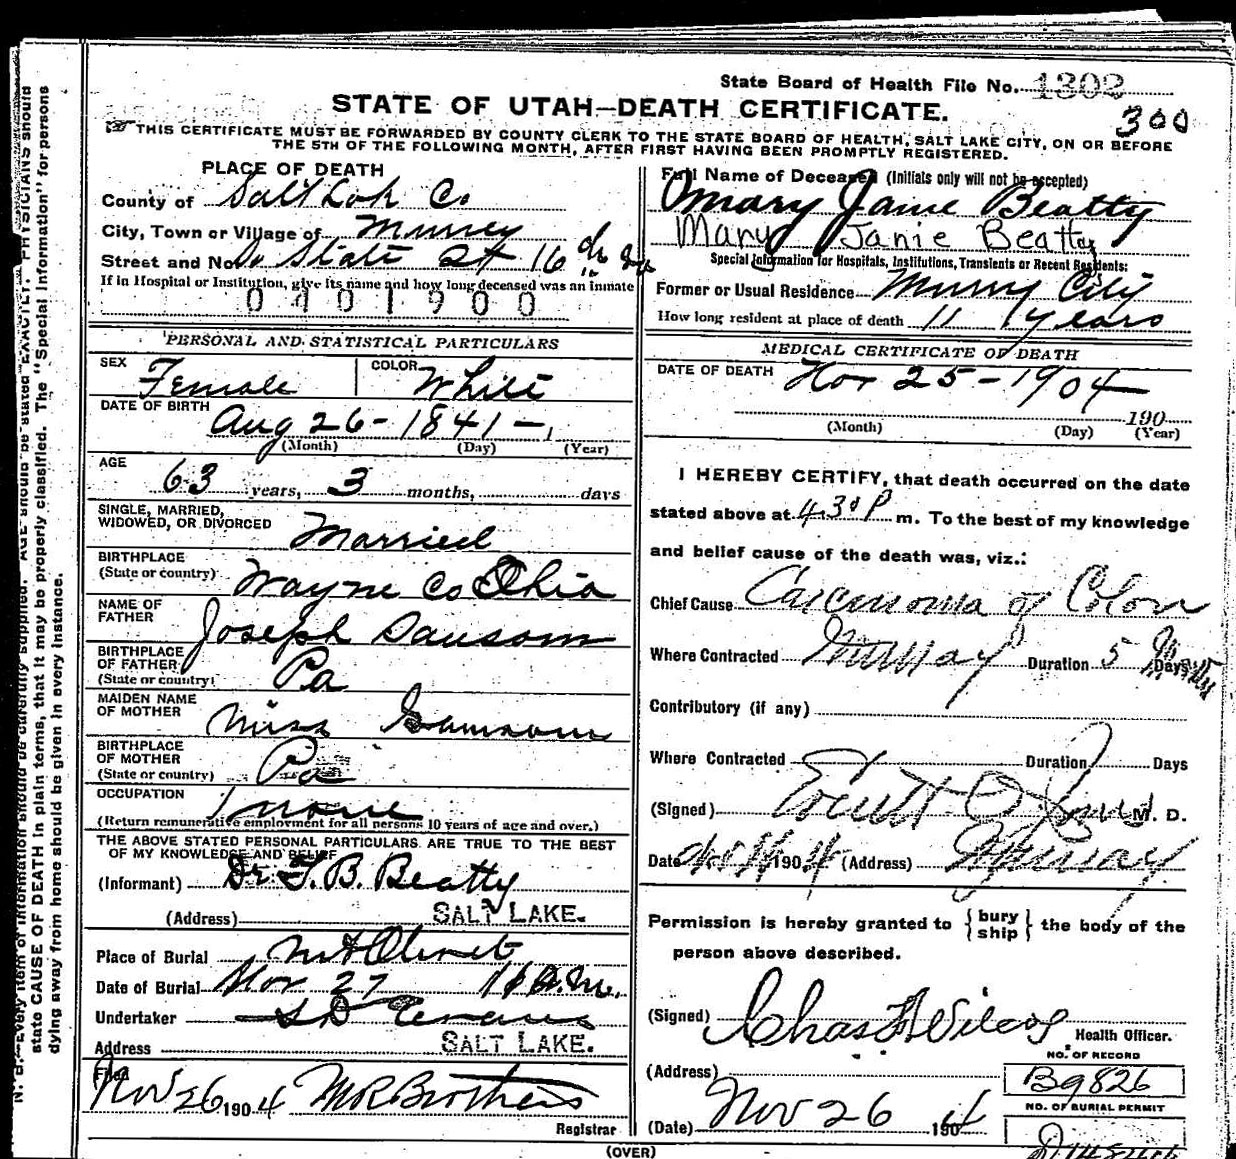 State Board of Health File No. 1302
300
STATE OF UTAH—DEATH CERTIFICATE.
THIS CERTIFICATE MUST BE FORWARDED BY COUNTY CLERK TO THE STATE BOARD OF HEALTH, SALT LAKE CITY, ON OR BEFORE
THE 5TH OF THE FOLLOWING MONTH, AFTER FIRST HAVING BEEN PROMPTLY REGISTERED.
PLACE OF DEATH
County of Salt Lak Co
City, Town or Village of Murray
Street and No. State St 16th So
If in Hospital or Institution, give its name and how long deceased was an inmate
0401900
Full Name of Deceased (Initials only will not be accepted)
Mary Janie Beatty
Mary Janie Beatty
Special Information for Hospitals, Institutions, Transients or Recent Residents:
Former or Usual Residence Murray City
How long resident at place of death 11 years
PERSONAL AND STATISTICAL PARTICULARS
SEX Female COLOR White
DATE OF BIRTH Aug 26-1841-
(Month) (Day) (Year)
AGE 63 years, 3 months, days
SINGLE, MARRIED,
WIDOWED, OR DIVORCED Married
BIRTHPLACE
(State or country) Wayne Co Ohio
NAME OF
FATHER Joseph Sansom
BIRTHPLACE
OF FATHER
(State or country) Pa
MAIDEN NAME
OF MOTHER Miss
BIRTHPLACE
OF MOTHER
(State or country) Pa
OCCUPATION none
(Return remunerative employment for all persons 10 years of age and over.)
THE ABOVE STATED PERSONAL PARTICULARS ARE TRUE TO THE BEST
OF MY KNOWLEDGE AND BELIEF
(Informant) Dr. T. B. Beatty
(Address) SALT LAKE.
Place of Burial Mt Olivet
Date of Burial Nov 27 11 A.M.
Undertaker S D Evans
Address SALT LAKE.
Filed
Nov 26 1904 M R Brothers
Registrar
MEDICAL CERTIFICATE OF DEATH
DATE OF DEATH Nov 25-1904
190
(Month) (Day) (Year)
I HEREBY CERTIFY, that death occurred on the date
stated above at 4.30 P m. To the best of my knowledge
and belief cause of the death was, viz.:
Chief Cause Carcinoma of Colon
Where Contracted Murray Duration 5 Days
Contributory (if any)
Where Contracted Duration Days
(Signed) M. D.
Date 1904 (Address) Murray
Permission is hereby granted to {bury
ship} the body of the
person above described.
(Signed) Chas F Wilcox
Health Officer.
(Address)
NO. OF RECORD
B9826
NO. OF BURIAL PERMIT
(Date) Nov 26 1904
(OVER)
N. B.—Every item of information should be carefully supplied. AGE should be stated EXACTLY. PHYSICIANS should
state CAUSE OF DEATH in plain terms, that it may be properly classified. The "Special Information" for persons
dying away from home should be given in every instance.